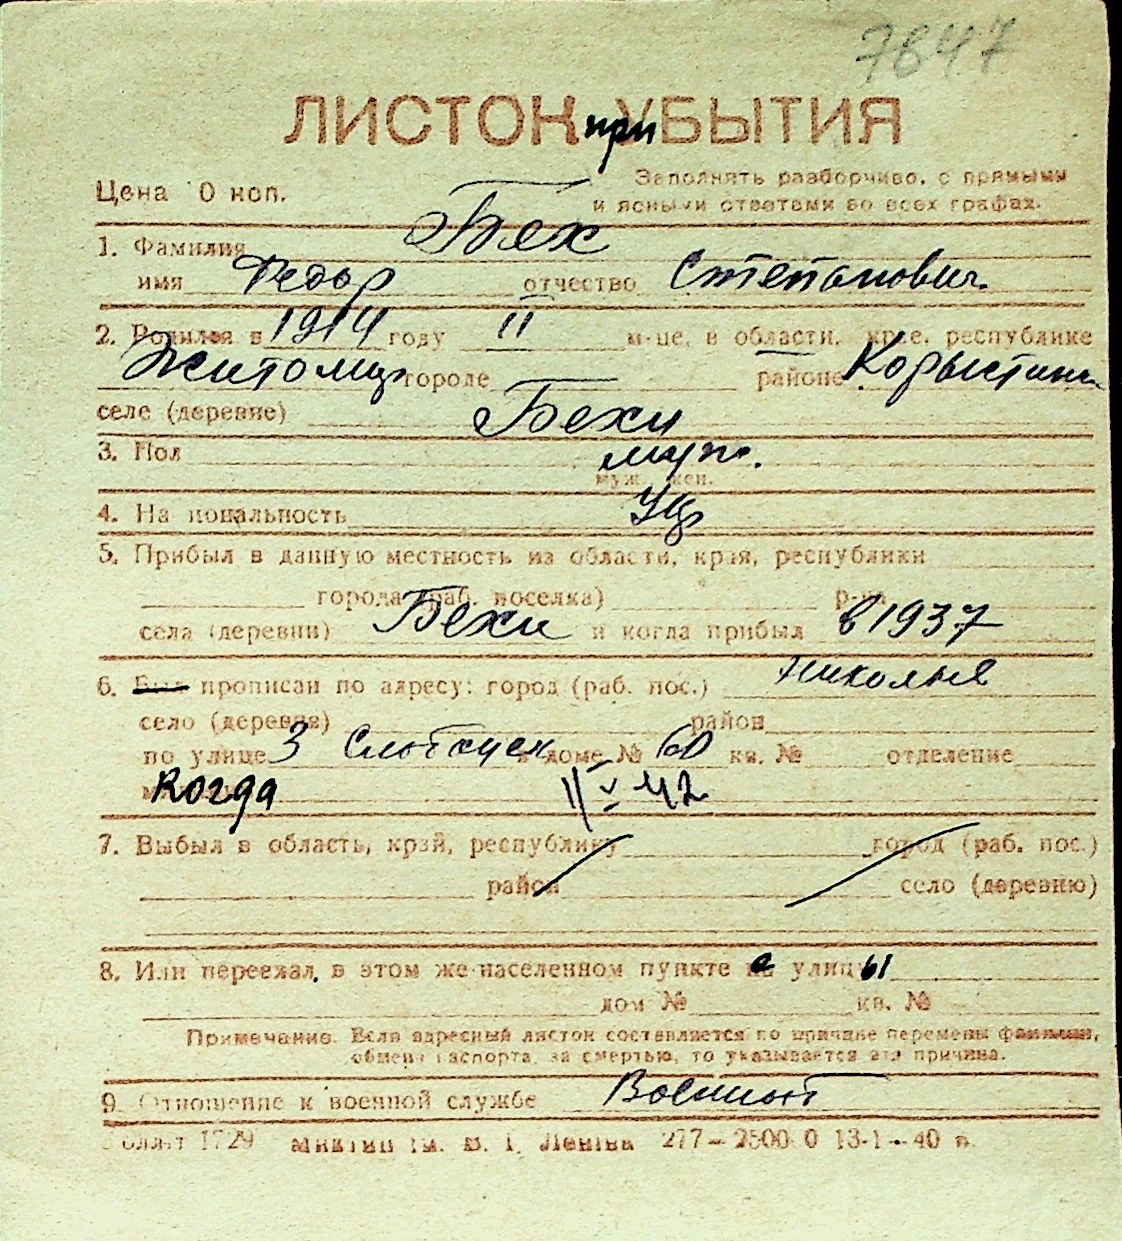 7647
ЛИСТОК при УБЫТИЯ
Цена 0 коп.
Заполнять разборчиво, с прямыми
и ясными ответами во всех графах.
1. Фамилия Бех
имя Федор отчество Степанович
2. Родился в 1914 году II м-це, в области, крае, республике
Житомир городе районе
селе (деревне) Бехи
3. Пол муж.
муж. жен.
4. На иональность Укр
5. Прибыл в данную местность из области, края, республики
города (раб. поселка) р-на
села (деревни) Бехи и когда прибыл в 1937
6. Был прописан по адресу: город (раб. пос.)
село (деревня) район
по улице 3 Слободская в доме № 60 кв. № отделение
Когда 11 V 42
7. Выбыл в область, край, республику город (раб. пос.)
район село (деревню)
8. Или переехал, в этом же населенном пункте с улицы
дом № кв. №
Примечание. Если адресный листок составляется по причине перемены фамилии,
обмена паспорта, за смертью, то указывается эта причина.
9. Отношение к военной службе
1729 ім. В. І. Леніна 277—2500 0 13-1—40 п.